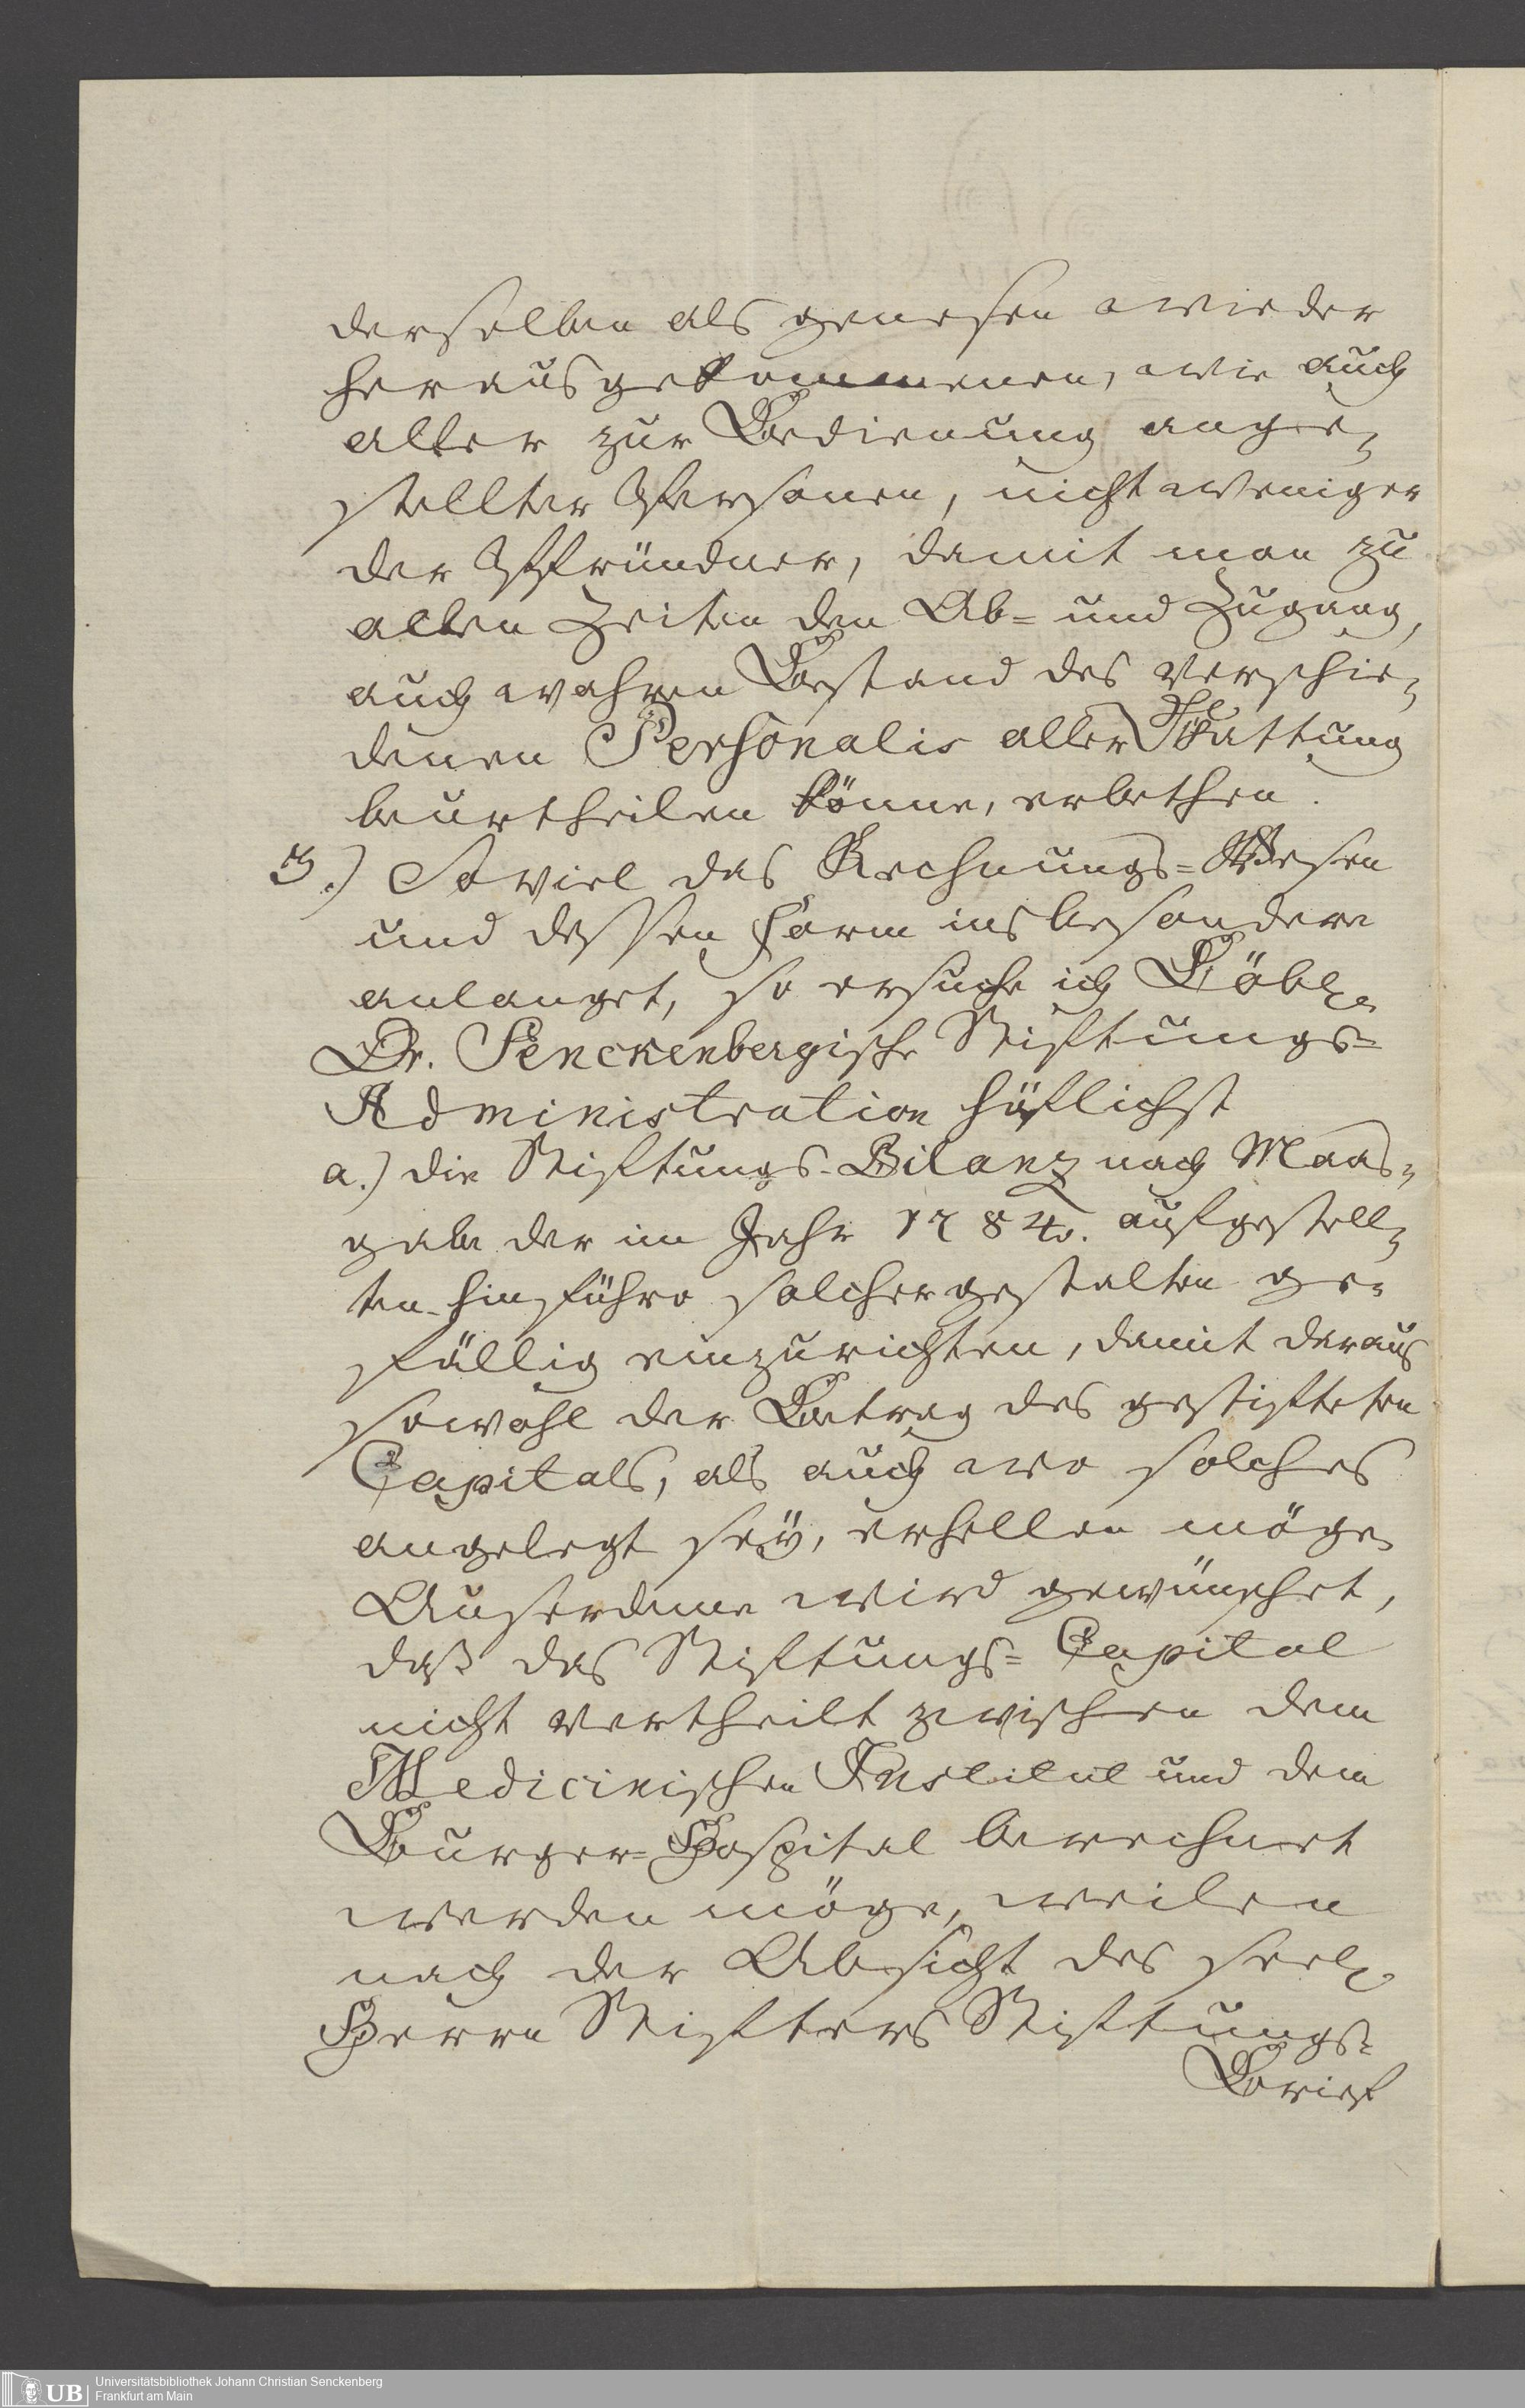 derselben als genesen wieder
herausgekommenen, wie auch
aller zur Bedienung ange-
stellter Personen, nicht weniger
der Pfründner, damit man zu
allen Zeiten den Ab- und Zugang,
auch wahren Bestand des verschie-
denen Personalis aller Gattung
beurtheilen könne, erbethen.
3.) So viel das Rechnungs-Wesen
und dessen Form insbesondere
anlanget, so ersuche ich Löbl.
Dr. Senckenbergische Stiftungs-
Administration höflichst
a.) die Stiftungs-Bilanz nach Maas-
gabe der im Jahr 1784. aufgestell-
ten hinführo solchergestalten ge-
fällig einzurichten, damit daraus
sowohl der Betrag des gestifteten
Capitals, als auch wo solches
angelegt seÿ, erhellen möge
Auserdeme wird gewünschet,
daß das Stiftungs-Capital
nicht vertheilt zwischen dem
Medicinischen Institut und dem
Burger-Hospital berechnet
werden möge, weilen
nach der Absicht des seel.
Herrn Stifters Stiftungs-
Brief
Universitätsbibliothek Johann Christian Senckenberg
Frankfurt am Main
UB